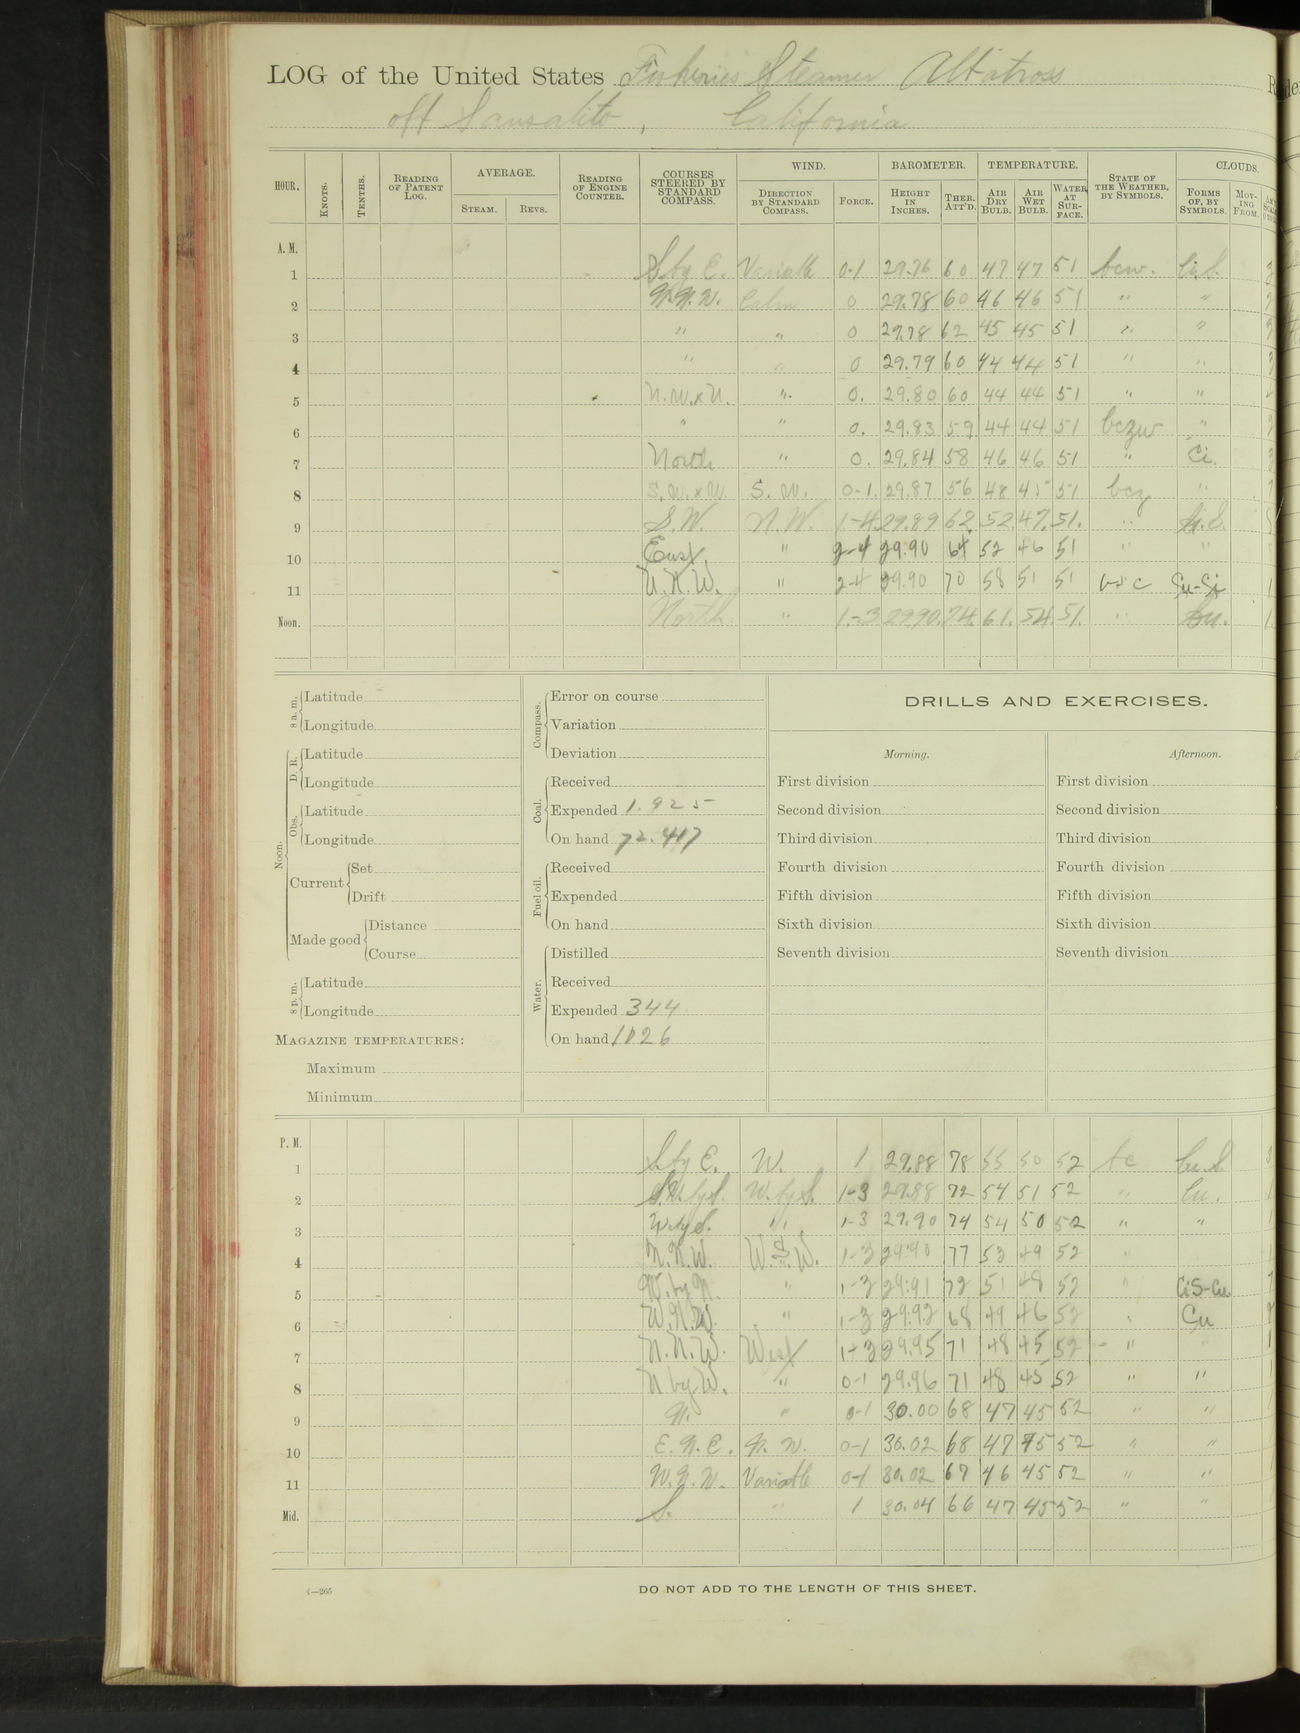 LOG of the United States Fisheries Steamer Albatross
off Sausalito, California
HOUR. KNOTS. TENTHS. READING OF PATENT LOG. AVERAGE. STEAM. REVS. READING OF ENGINE COUNTER. COURSES STEERED BY STANDARD COMPASS. WIND. DIRECTION BY STANDARD COMPASS. FORCE. BAROMETER. HEIGHT IN INCHES. THER. ATT'D. TEMPERATURE. AIR DRY BULB. AIR WET BULB. WATER AT SURFACE. STATE OF THE WEATHER, BY SYMBOLS. CLOUDS. FORMS OF, BY SYMBOLS. MOVING FROM.
A. M.
1 S by E. Variable 0-1 29.76 60 47 47 51 bcw. Ci.S.
2 N.N.W. Calm 0 29.78 60 46 46 51 " "
3 " " 0 29.78 62 45 45 51 " "
4 " " 0 29.79 60 44 44 51 " "
5 N.W.xN. " 0. 29.80 60 44 44 51 " "
6 " " 0. 29.83 59 44 44 51 bczw "
7 North " 0. 29.84 58 46 46 51 " Ci.
8 S.W.xW. S.W. 0-1. 29.87 56 48 45 51 bcz "
9 S.W. N.W. 1-4 29.89 62. 52. 47. 51. "
10 East " 2-4 29.90 64 52 46 51 " "
11 N.N.W. " 2-4 29.90 70 58 51 51
Noon. North. " 1.-3 29.90. 74. 61. 54. 51. " Cu.
8 a. m. Latitude
Longitude
Noon. D. R. Latitude
Longitude
Obs. Latitude
Longitude
Current Set
Drift
Made good Distance
Course
8 p. m. Latitude
Longitude
MAGAZINE TEMPERATURES:
Maximum
Minimum
Compass. Error on course
Variation
Deviation
Coal. Received
Expended 1.925
On hand 72.417
Fuel oil. Received
Expended
On hand
Water. Distilled
Received
Expended 344
On hand 1026
DRILLS AND EXERCISES.
Morning.
First division
Second division
Third division
Fourth division
Fifth division
Sixth division
Seventh division
Afternoon.
First division
Second division
Third division
Fourth division
Fifth division
Sixth division
Seventh division
P. M.
1 S by E. W. 1 29.88 78 55 50 52 bc Cu.S.
2 S.W. by S. W. by S. 1-3 29.88 72 54 51 52 " Cu.
3 W. by S. " 1-3 29.90 74 54 50 52 " "
4 N.N.W. W.S.W. 1-3 29.90 77 53 49 52 "
5 W. by N. " 1-3 29.91 72 51 48 52 " CiS-Cu
6 W.N.W. " 1-3 29.92 68 49 46 52 " Cu
7 N.N.W. West 1-3 29.95 71 48 45 52 " "
8 N by W. " 0-1 29.96 71 48 45 52 " "
9 N. " 0-1 30.00 68 47 45 52 " "
10 E.N.E. N.W. 0-1 30.02 68 47 45 52 " "
11 W.N.W. Variable 0-1 30.02 67 46 45 52 " "
Mid. S. " 1 30.04 66 47 45 52 " "
4—265
DO NOT ADD TO THE LENGTH OF THIS SHEET.